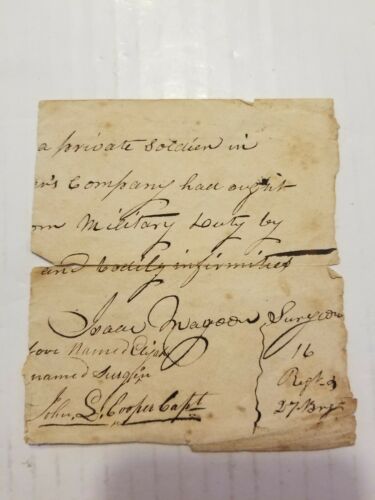 a private soldier in
er's Company had ought
om Military Duty by
and bodily infirmities
Isaac Magoon Surgeon
bove Named 16
named Surgin Regt &
John L. Cooper Capt 27 Brg